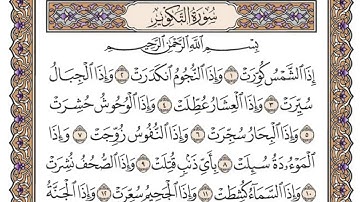 سُورَةُ التَّكْوِيرِ
بِسْمِ اللَّهِ الرَّحْمَٰنِ الرَّحِيمِ
إِذَا الشَّمْسُ كُوِّرَتْ ١ وَإِذَا النُّجُومُ انكَدَرَتْ ٢ وَإِذَا الْجِبَالُ
سُيِّرَتْ ٣ وَإِذَا الْعِشَارُ عُطِّلَتْ ٤ وَإِذَا الْوُحُوشُ حُشِرَتْ
٥ وَإِذَا الْبِحَارُ سُجِّرَتْ ٦ وَإِذَا النُّفُوسُ زُوِّجَتْ ٧ وَإِذَا
الْمَوْءُدَةُ سُئِلَتْ ٨ بِأَيِّ ذَنْبٍ قُتِلَتْ ٩ وَإِذَا الصُّحُفُ نُشِرَتْ
١٠ وَإِذَا السَّمَاءُ كُشِطَتْ ١١ وَإِذَا الْجَحِيمُ سُعِّرَتْ ١٢ وَإِذَا الْجَنَّةُ